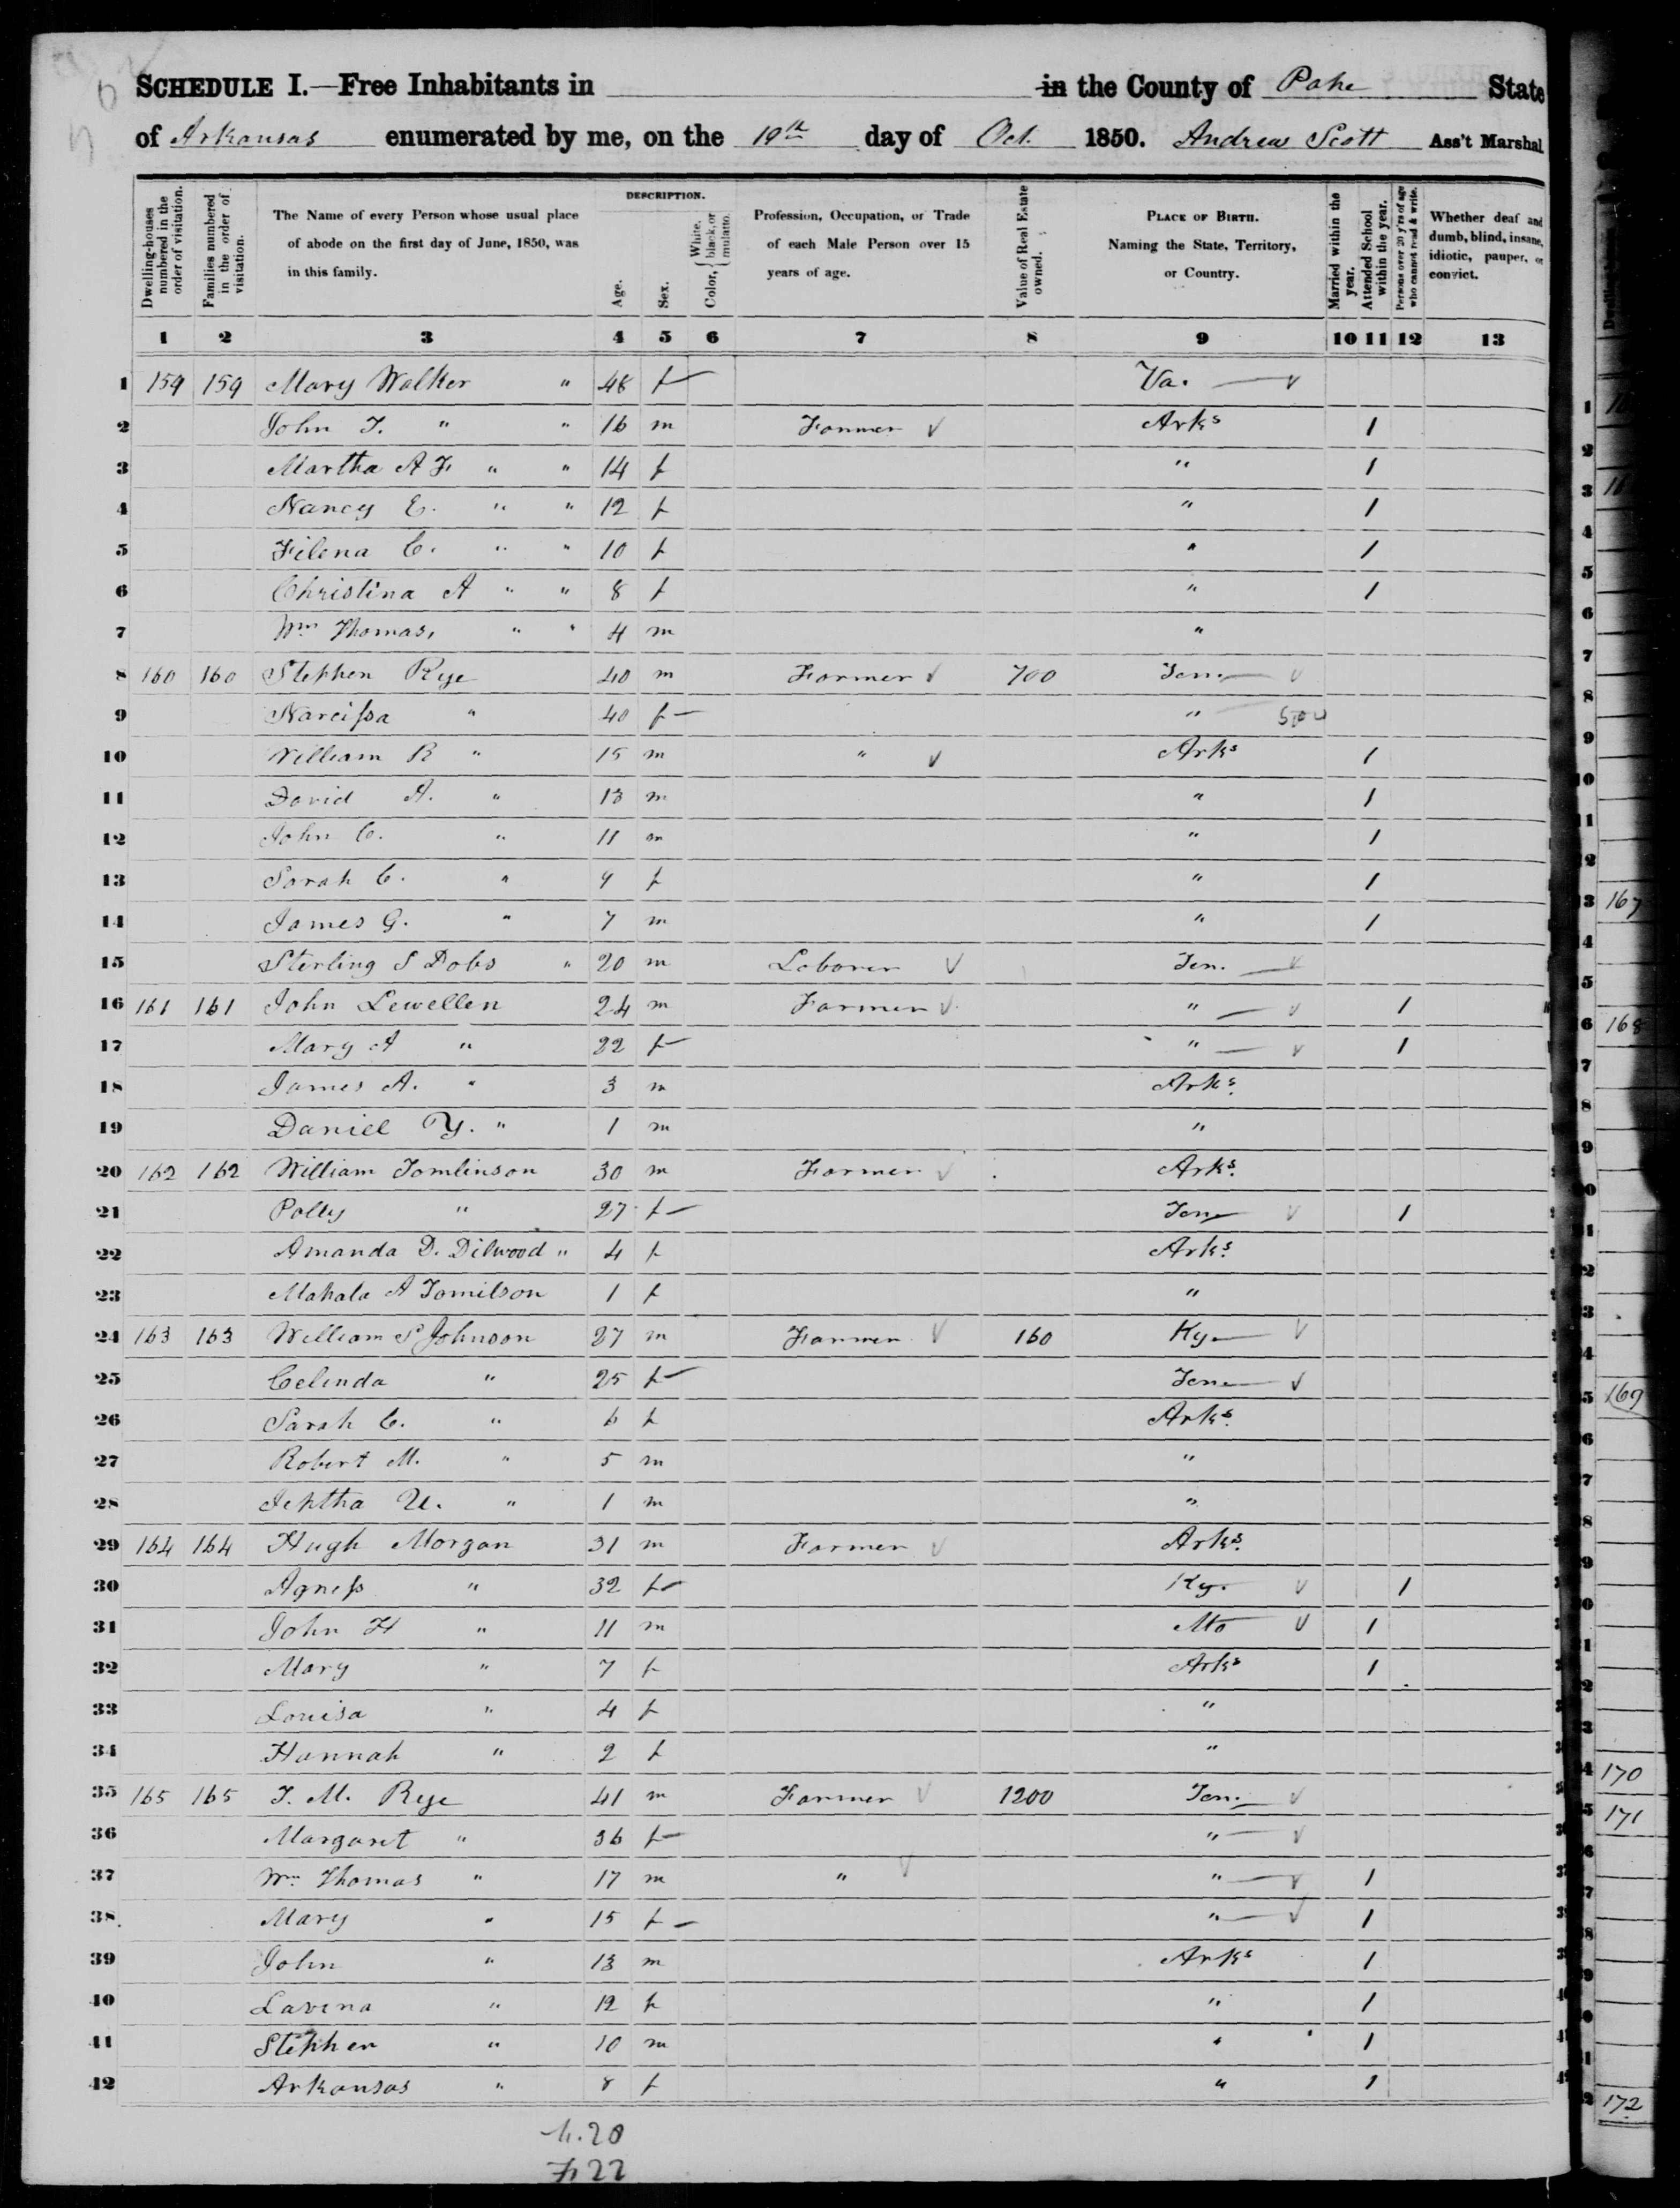 SCHEDULE I.—Free Inhabitants in in the County of Pope State
of Arkansas enumerated by me, on the 19th day of Oct. 1850. Andrew Scott Ass't Marshal
Dwelling-houses numbered in the order of visitation.
Families numbered in the order of visitation.
The Name of every Person whose usual place of abode on the first day of June, 1850, was in this family.
DESCRIPTION.
Age.
Sex.
Color, { White, black, or mulatto.
Profession, Occupation, or Trade of each Male Person over 15 years of age.
Value of Real Estate owned.
PLACE OF BIRTH. Naming the State, Territory, or Country.
Married within the year.
Attended School within the year.
Persons over 20 y'rs of age who cannot read & write.
Whether deaf and dumb, blind, insane, idiotic, pauper, or convict.
1 2 3 4 5 6 7 8 9 10 11 12 13
1 159 159 Mary Walker " 48 f Va.
2 John T. " " 16 m Farmer Arks 1
3 Martha A F " " 14 f " 1
4 Nancy E. " " 12 f " 1
5 Filena C. " " 10 f " 1
6 Christina A " " 8 f " 1
7 Wm Thomas, " " 4 m "
8 160 160 Stephen Rye 40 m Farmer 700 Ten.
9 Narcissa " 40 f "
10 William R " 15 m " Arks 1
11 David A. " 13 m " 1
12 John C. " 11 m " 1
13 Sarah C. " 9 f " 1
14 James G. " 7 m " 1
15 Sterling S Dobs " 20 m Laborer Ten.
16 161 161 John Lewellen 24 m Farmer " 1
17 Mary A " 22 f " 1
18 James A. " 3 m Arks.
19 Daniel Y. " 1 m "
20 162 162 William Tomlinson 30 m Farmer Arks.
21 Polly " 27 f Ten 1
22 Amanda D. Dilwood " 4 f Arks.
23 Mahala A Tomilson 1 f "
24 163 163 William S Johnson 27 m Farmer 160 Ky
25 Celinda " 25 f Ten
26 Sarah C. " 6 f Arks.
27 Robert M. " 5 m "
28 Jeptha U. " 1 m "
29 164 164 Hugh Morgan 31 m Farmer Arks.
30 Agness " 32 f Ky. 1
31 John H " 11 m Mo 1
32 Mary " 7 f Arks 1
33 Louisa " 4 f "
34 Hannah " 2 f "
35 165 165 T. M. Rye 41 m Farmer 1200 Ten.
36 Margaret " 36 f "
37 Wm Thomas " 17 m " " 1
38 Mary " 15 f " 1
39 John " 13 m Arks 1
40 Lavina " 12 f " 1
41 Stephen " 10 m " 1
42 Arkansas " 8 f " 1
20
22
167
168
169
170
171
172